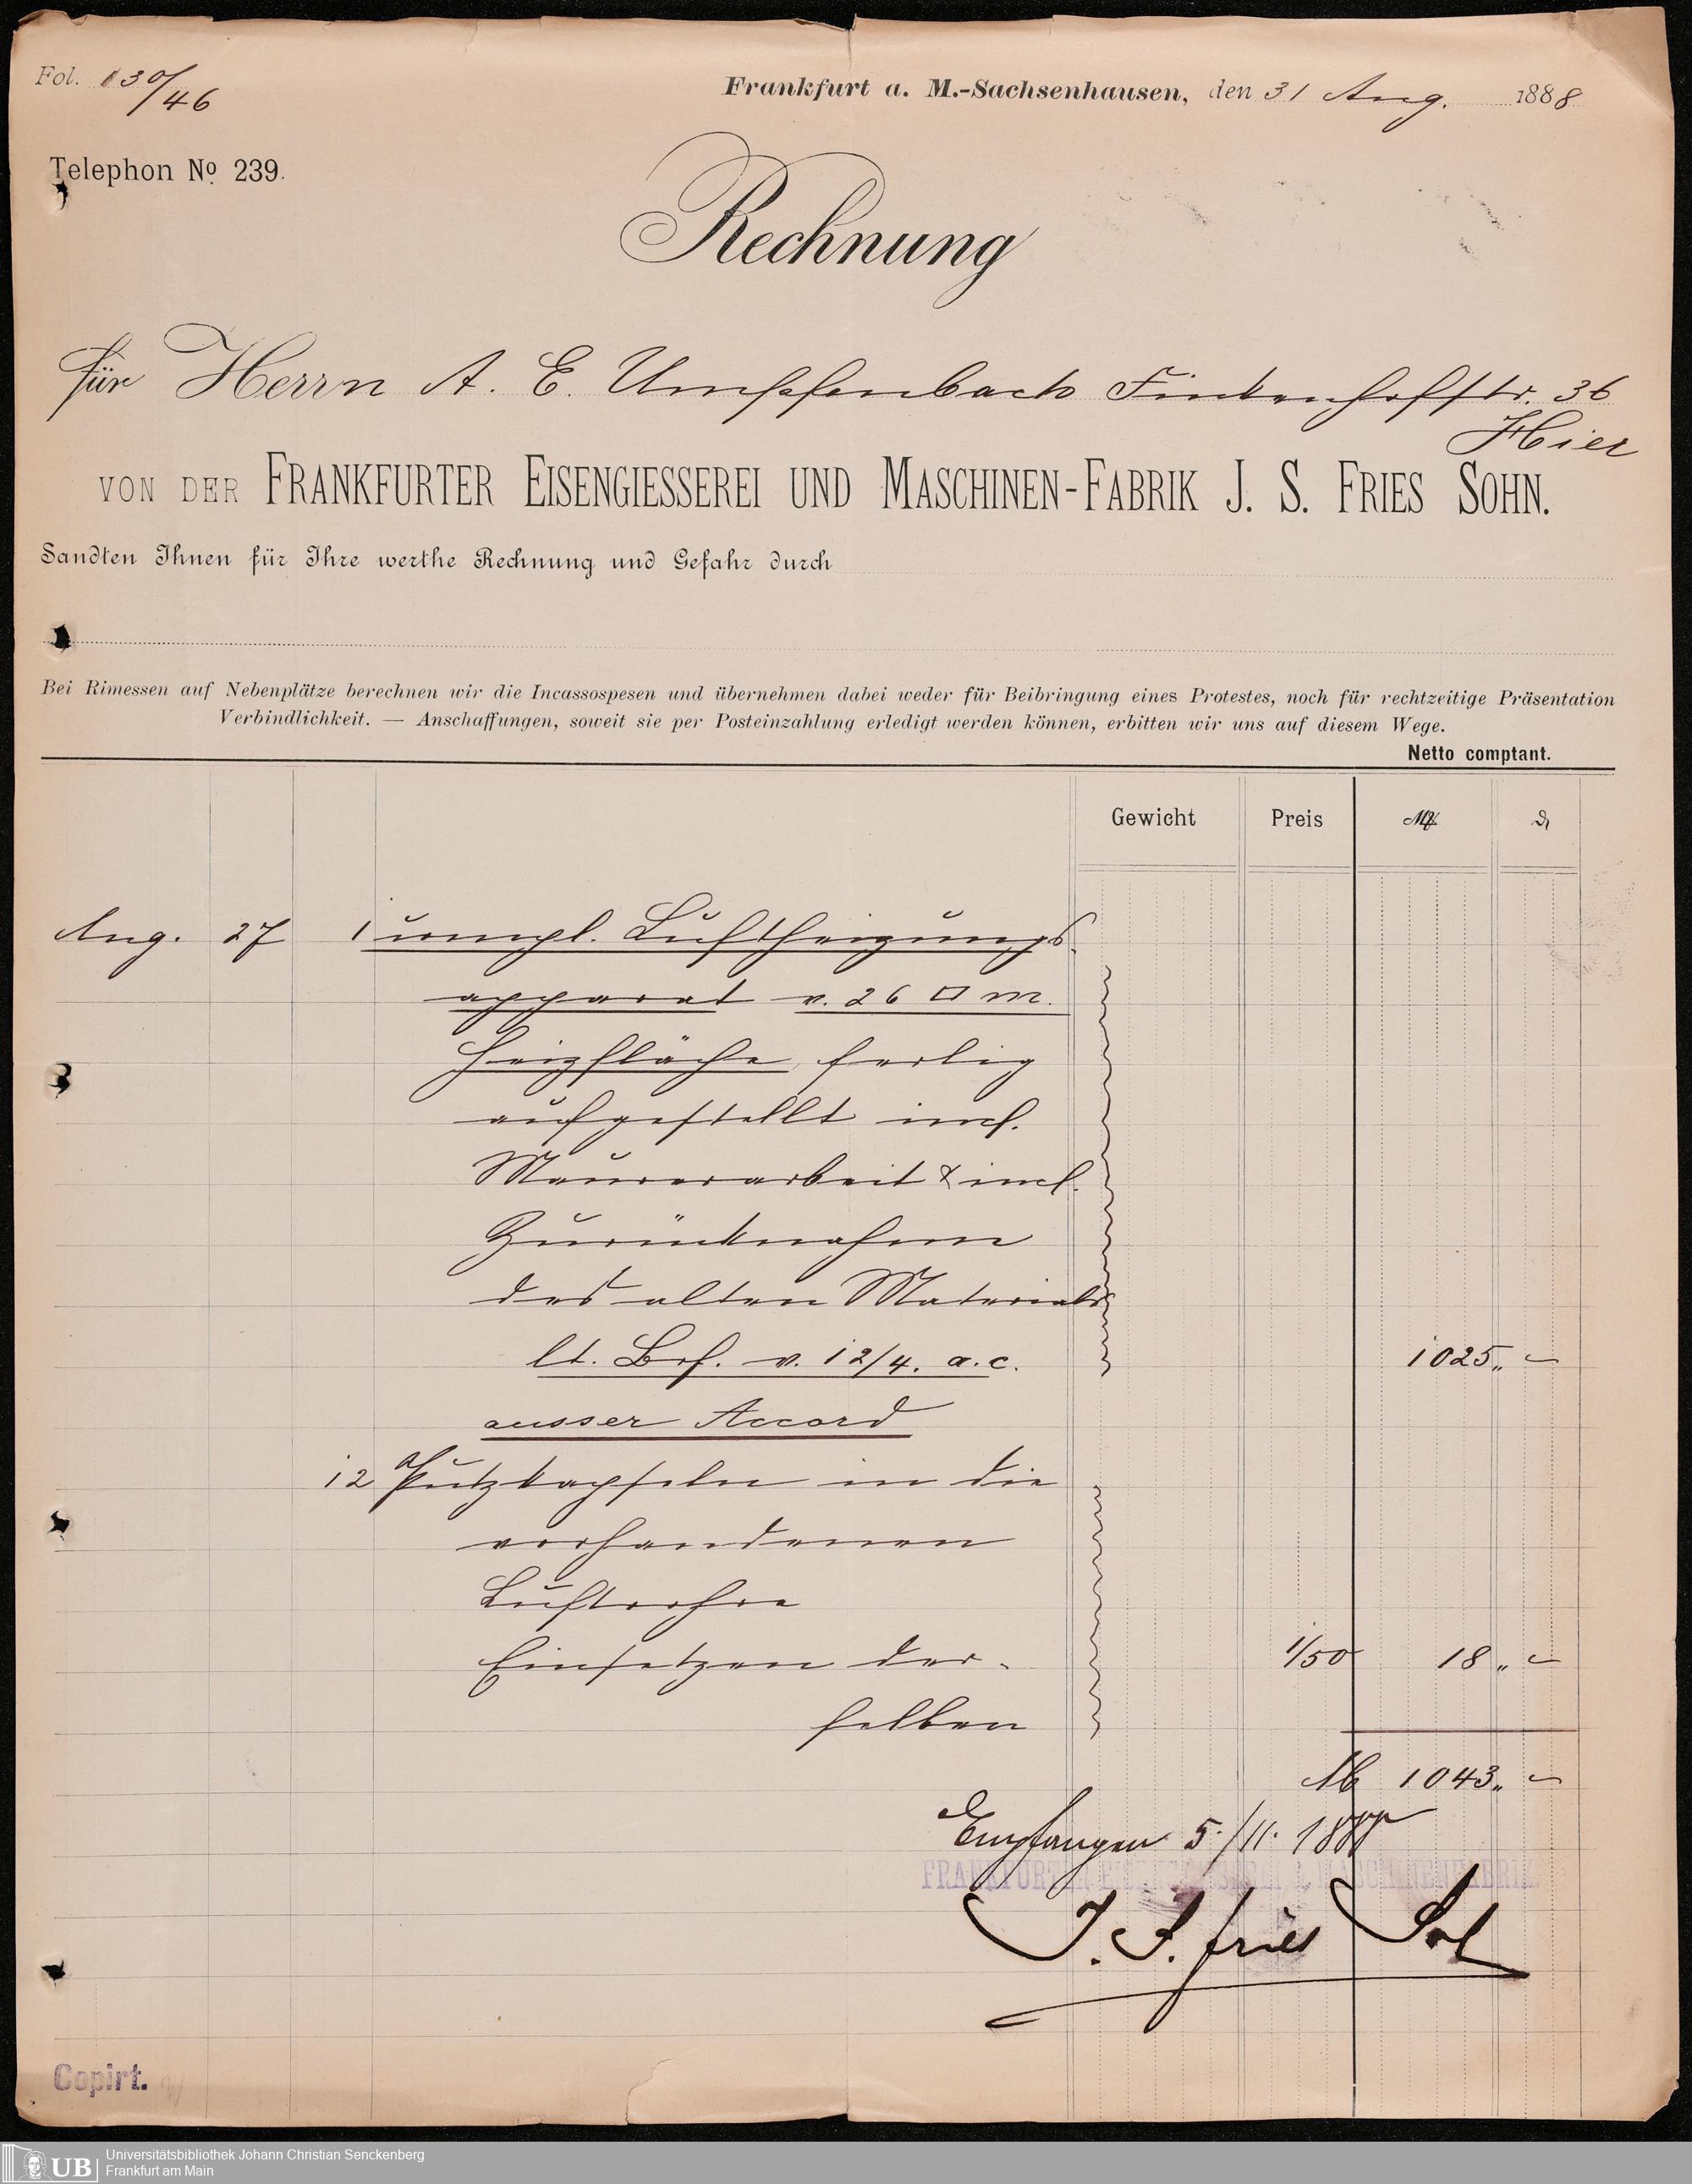 Fol. 130/46
Frankfurt a. M.-Sachsenhausen, den 31 Aug. 1888
Telephon No. 239.
Rechnung
für Herrn A. E. Umpfenbach Finkenhofstr. 36
Hier
VON DER FRANKFURTER EISENGIESSEREI UND MASCHINEN-FABRIK J. S. FRIES SOHN.
Sandten Ihnen für Ihre werthe Rechnung und Gefahr durch
Bei Rimessen auf Nebenplätze berechnen wir die Incassospesen und übernehmen dabei weder für Beibringung eines Protestes, noch für rechtzeitige Präsentation
Verbindlichkeit. — Anschaffungen, soweit sie per Posteinzahlung erledigt werden können, erbitten wir uns auf diesem Wege.
Netto comptant.
Gewicht Preis M ₰
Aug. 27 1 compl. Luftheizungs-
apparat v. 26 □ m.
Heizfläche, fertig
aufgestellt incl.
Maurerarbeit & incl.
Zurücknahme
des alten Materials
lt. Brf. v. 12/4. a.c. 1025 „ –
ausser Accord
12 Putzkapseln in die
vorhandenen
Luftrohre
Einsetzen der- 1/50 18 „ –
selben
M 1043 „ –
Empfangen 5./11. 1888
FRANKFURTER EISENGIESSEREI & MASCHINENFABRIK
J. S. Fries Sohn
Copirt.
UB Universitätsbibliothek Johann Christian Senckenberg
Frankfurt am Main